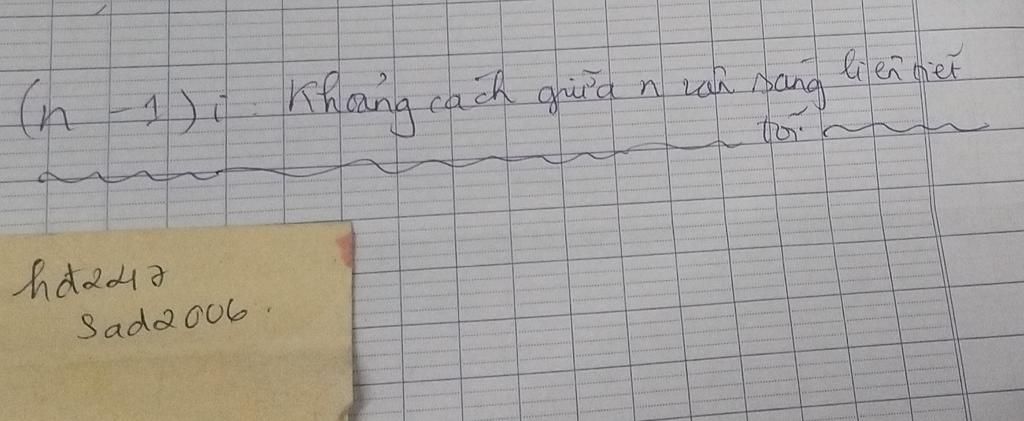 (n - 1) i : Khoảng cách giữa n vân sáng liên tiếp
tối.
hd2247
Sad2006.